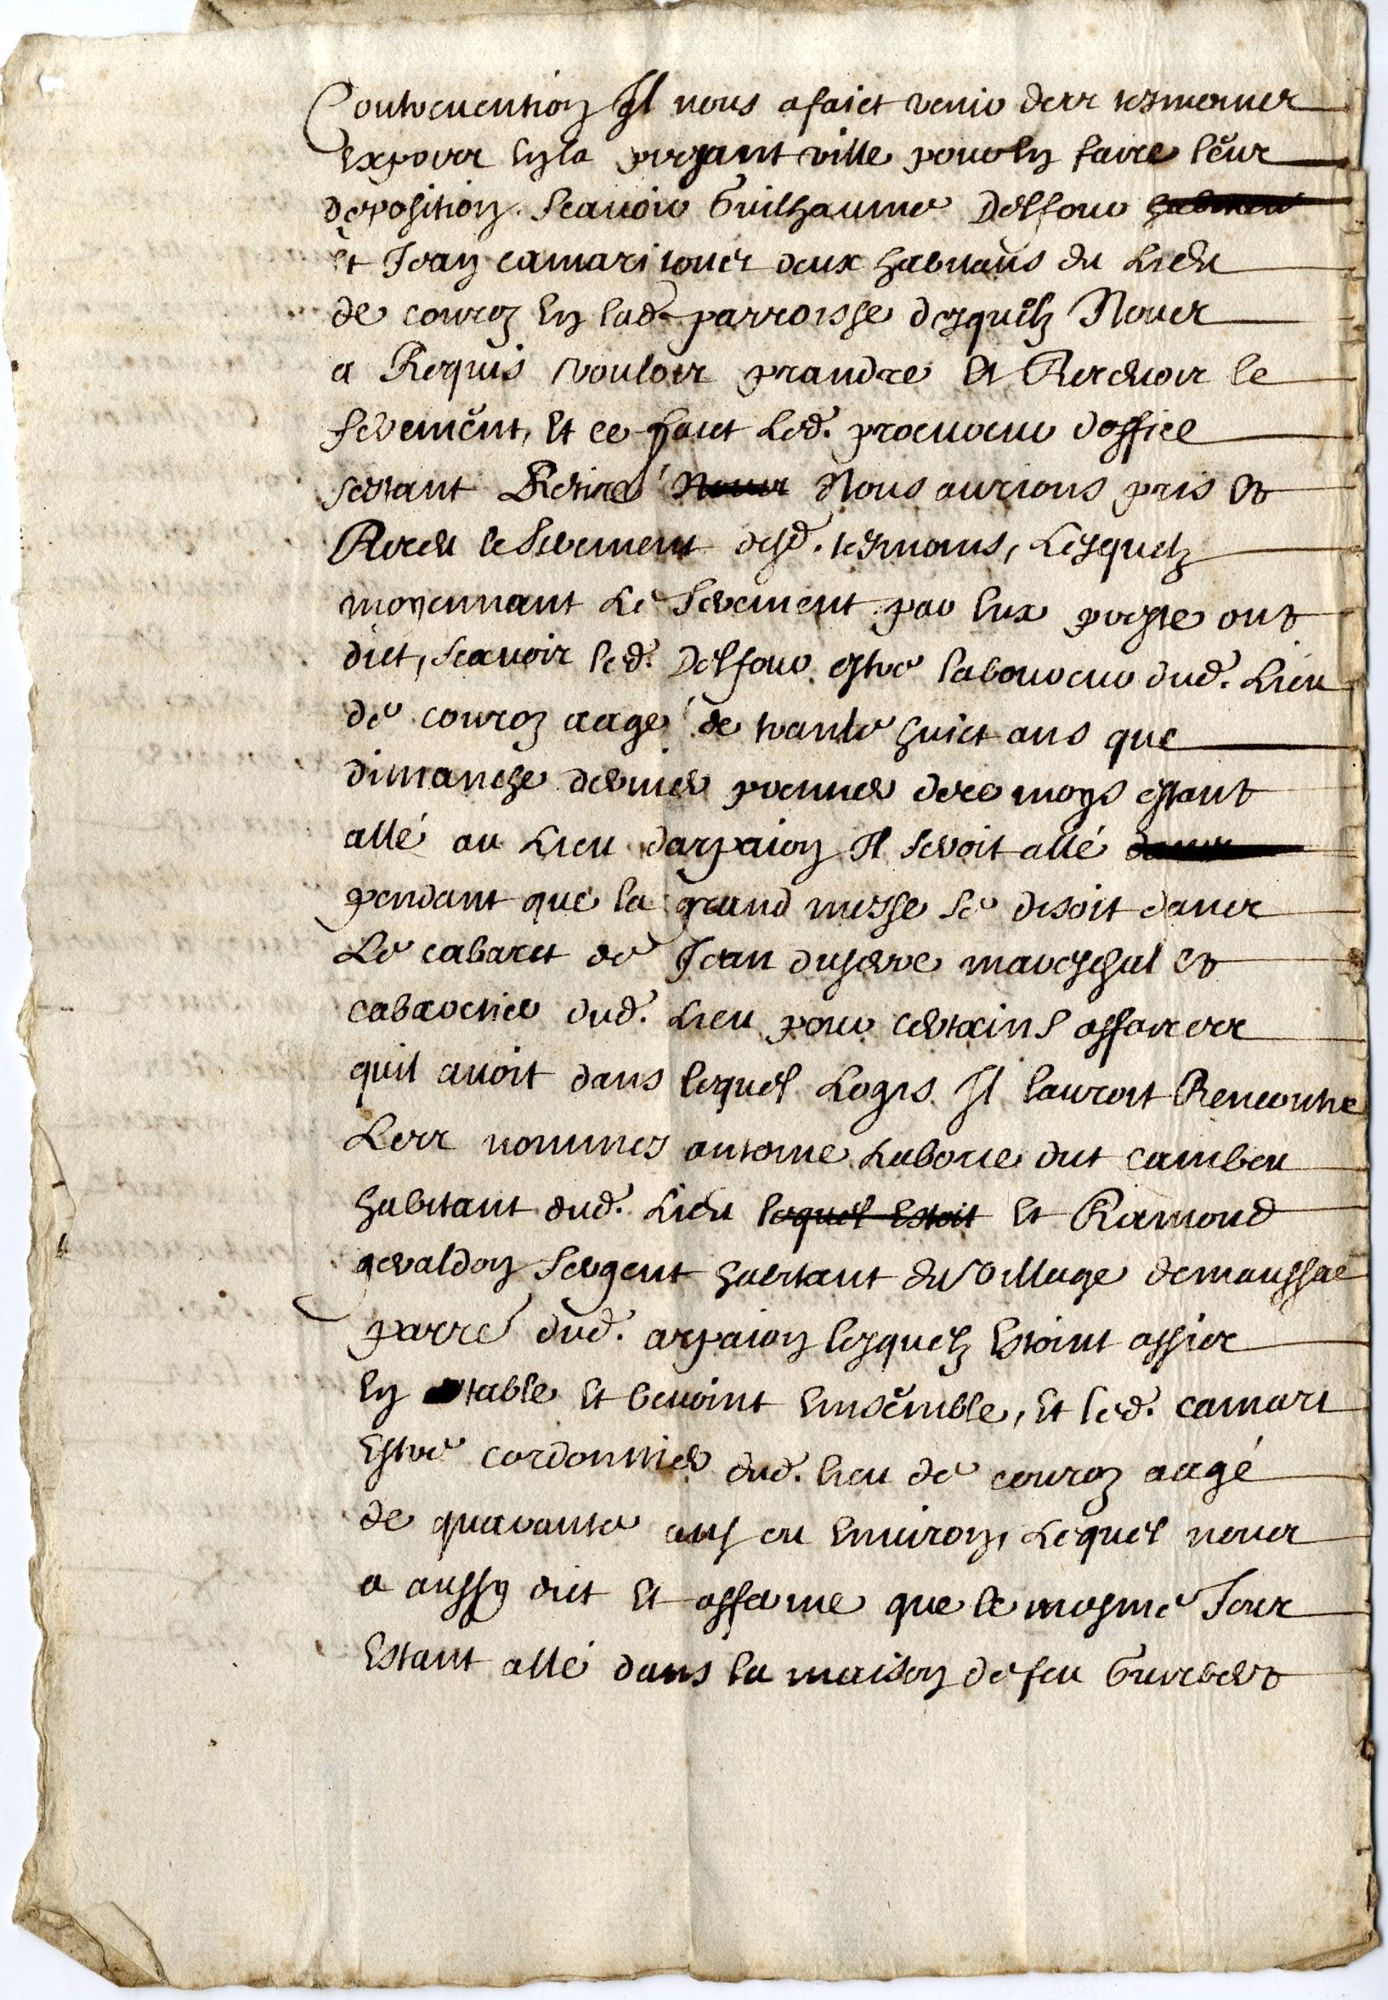 Contrevention Il nous a faict venir des tesmoins
expres en la presant ville pour en faire leur
deposition. Scavoir Guilhaume Delfour habitant
et Jean camari touts deux habitans du Lieu
de couroz en lad. parroisse desquelz Nous
a Requis vouloir prandre et Recevoir le
serement, et ce faict Led. procureur doffice
sestant Retiré Nous Nous aurions pris et
Receu le serement desd. tesmoins, Lesquelz
moyennant Le serement par eux preste ont
dict, scavoir led. Delfour estre laboureur dud. Lieu
de couroz aagé de trante huict ans que
dimanche dernier premier de ce moys estant
allé au Lieu darpaion Il seroit allé dans
pendant que la grand messe se disoit dans
Le cabaret de Jean duserre mareschal et
cabaretier dud. Lieu pour certains affaires
quil avoit dans lequel Logis Il auroit Rencontre
Les nommes antoine Laborie dit cambou
habitant dud. Lieu lequel estoit et Ramond
gevaldon sergent habitant du village de maussac
parre dud. arpaion lesquelz estoint assis
en table et beuoint ensemble, et led. camari
estre cordonnier dud. lieu de couroz aagé
de quarante ans ou environ, Lequel nous
a aussy dict et afferme que le mesme Jour
Estant allé dans la maison de feu Guirbert